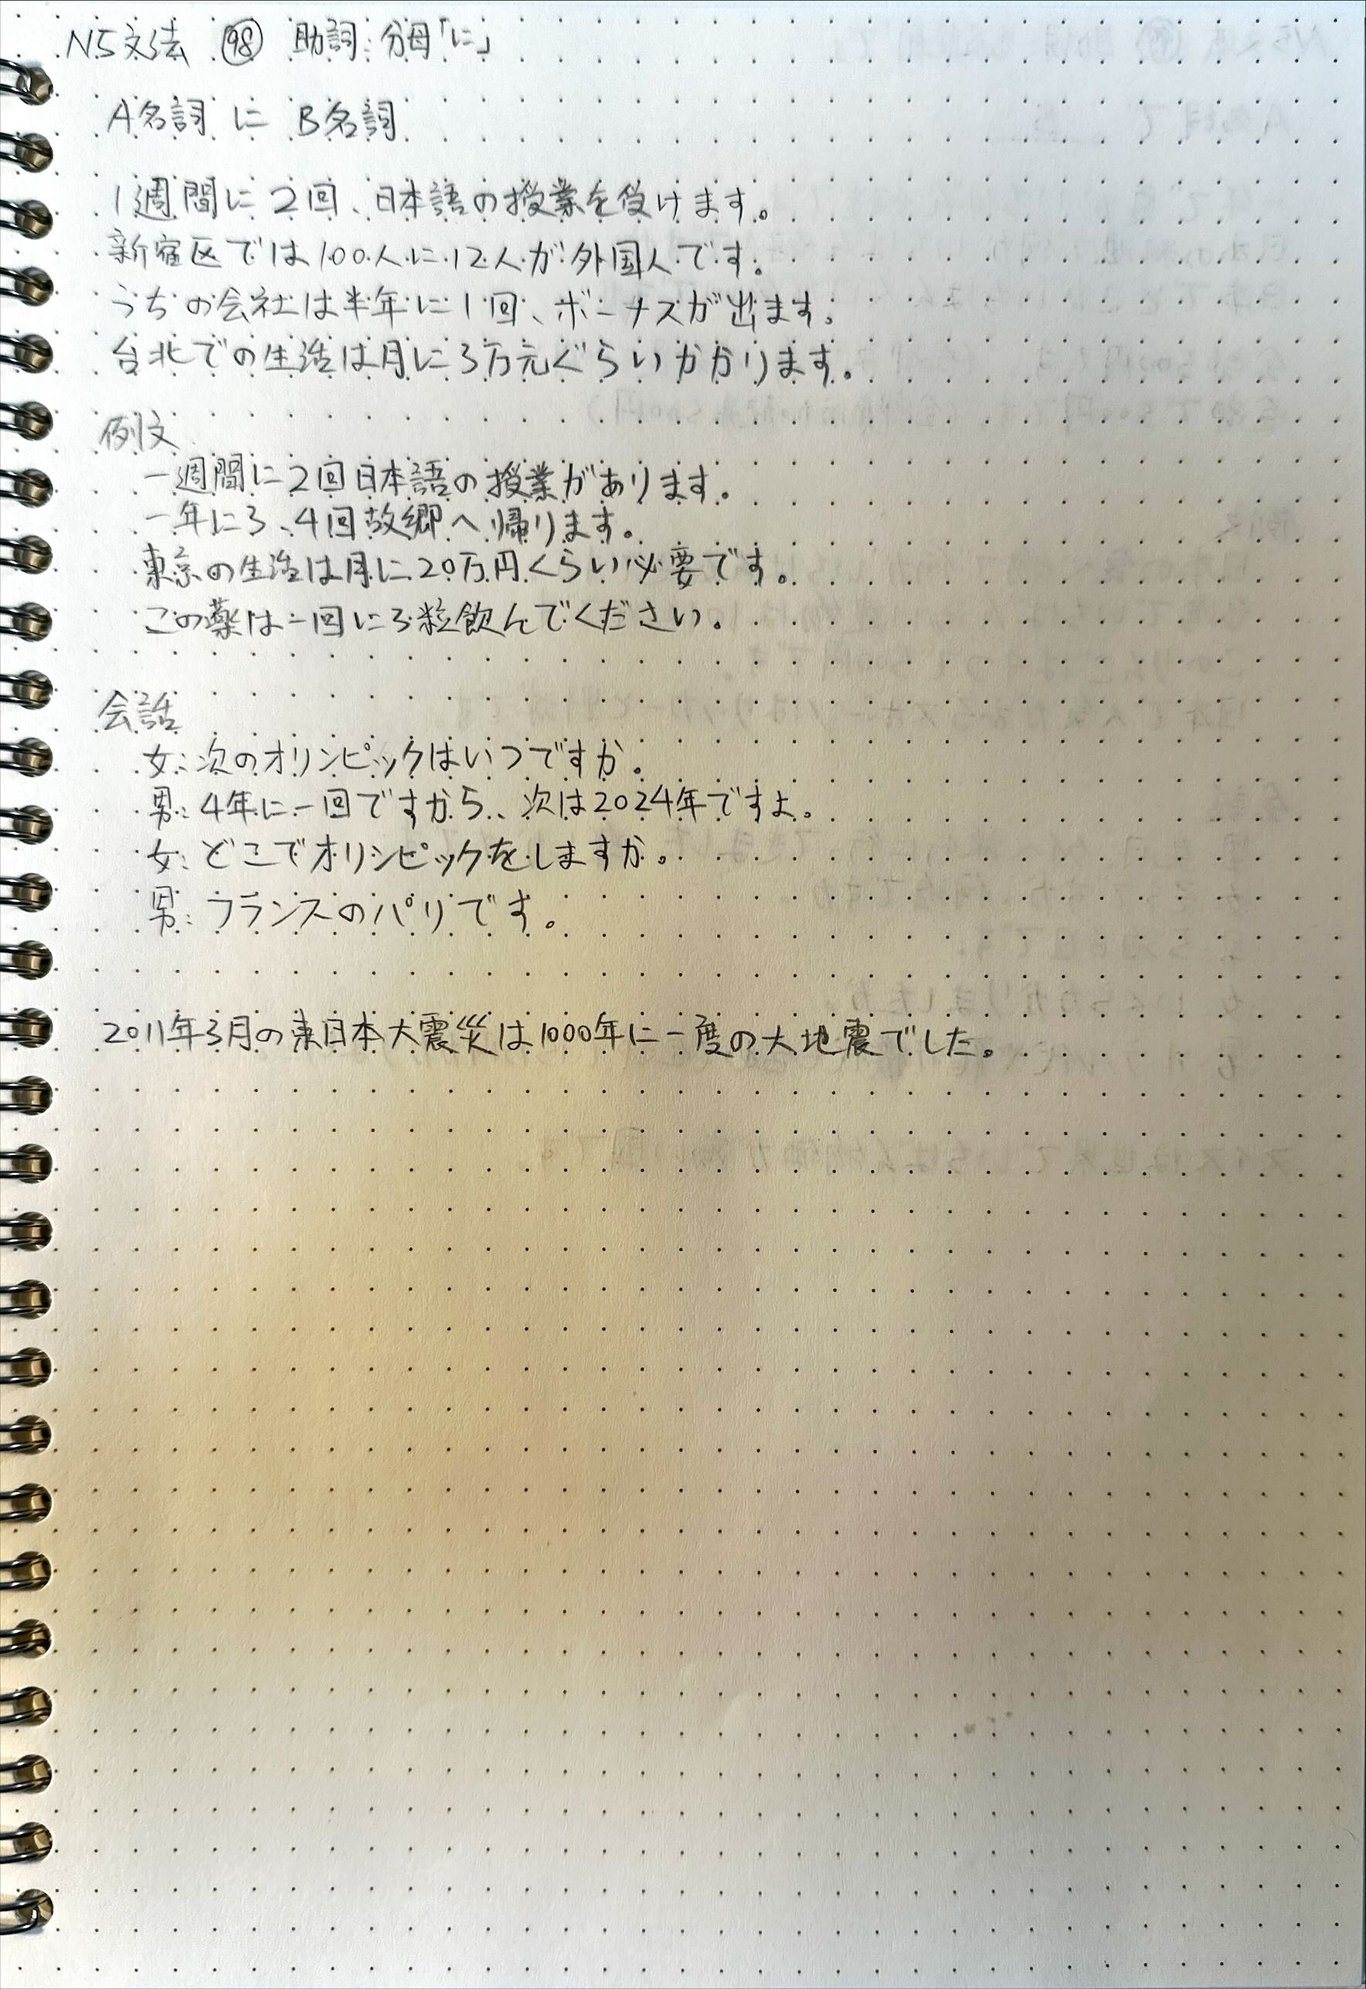 N5文法 ㊾ 助詞:分母「に」
A名詞 に B名詞
1週間に2回、日本語の授業を受けます。
新宿区では100人に12人が外国人です。
うちの会社は半年に1回、ボーナスが出ます。
台北での生活は月に3万元ぐらいかかります。
例文
一週間に2回日本語の授業があります。
一年に3、4回故郷へ帰ります。
東京の生活は月に20万円くらい必要です。
この薬は一回に3粒飲んでください。
会話
女:次のオリンピックはいつですか。
男:4年に一回ですから、次は2024年ですよ。
女:どこでオリンピックをしますか。
男:フランスのパリです。
2011年3月の東日本大震災は1000年に一度の大地震でした。